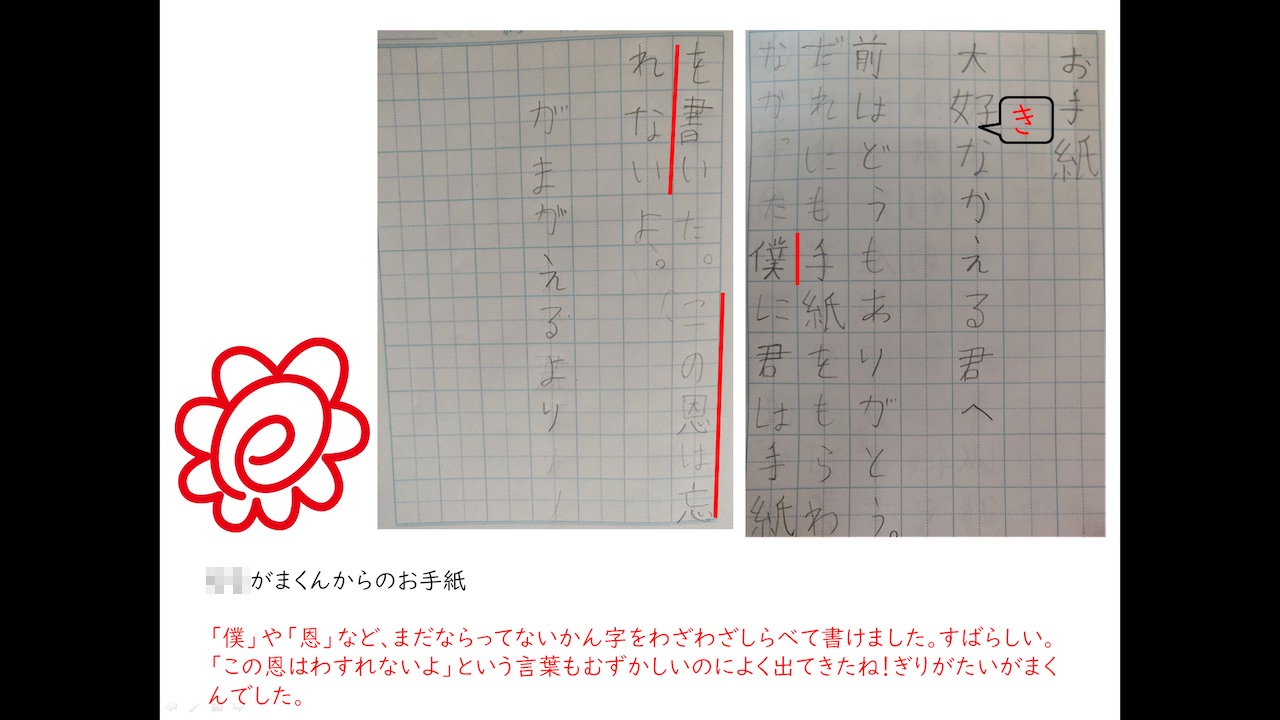 お手紙
大好なかえる君へ
き
前はどうもありがとう。
だれにも手紙をもらわ
ながった僕に君は手紙
を書いた。この恩は忘
れないよ。
がまがえるより
がまくんからのお手紙
「僕」や「恩」など、まだならってないかん字をわざわざしらべて書けました。すばらしい。
「この恩はわすれないよ」という言葉もむずかしいのによく出てきたね!ぎりがたいがまく
んでした。